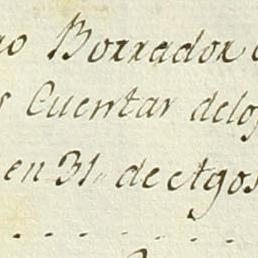 ro Borrador
s Cuentas delos
en 31,, de Agos